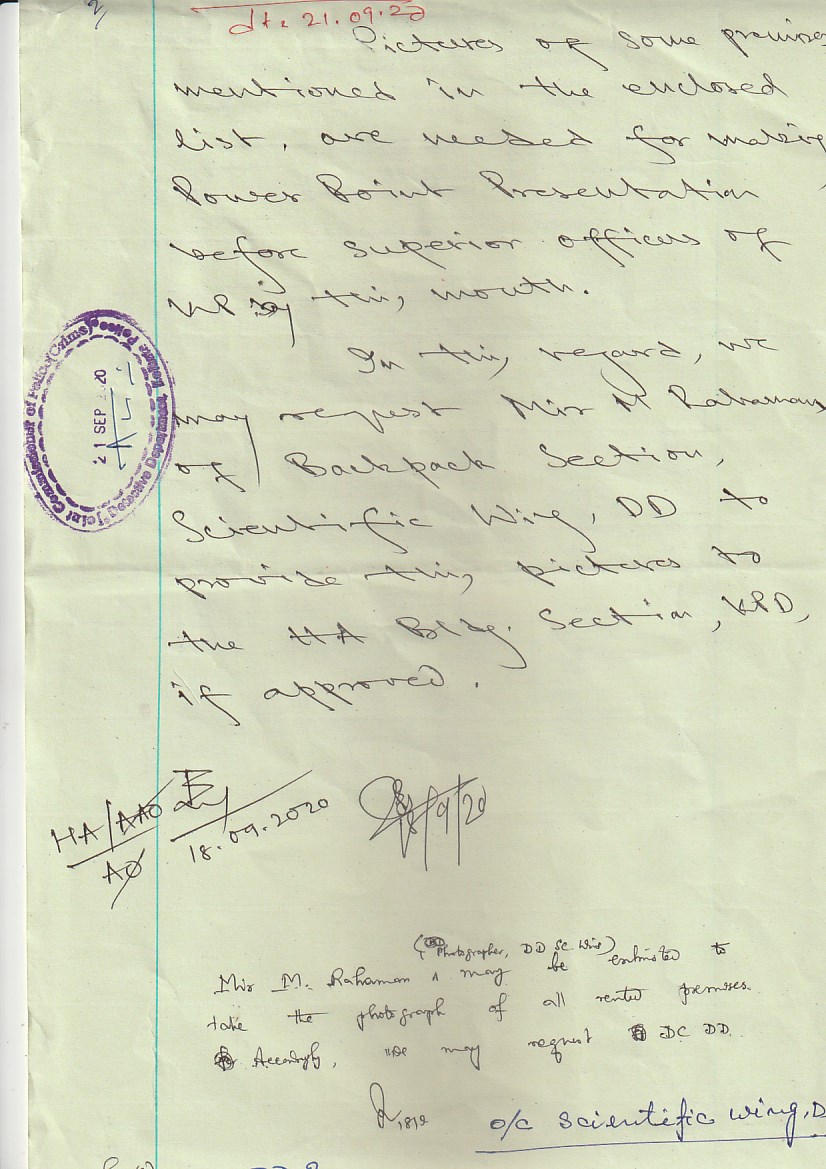 2/
dt. 21.09.20
Pictures of some premises
mentioned in the enclosed
list, are needed for making
Power Point Presentation
before superior officers of
KP in this month.
In this regard, we
may request Mir M Rahaman
of Backpack Section,
Scientific Wing, DD to
provide this pictures to
the HA Bldg. Section, KPD,
if approved.
Joint Commissioner of Police (Crime)
21 SEP 2020
Detective Department, Kolkata Police
HA/AAO
18.09.2020
AO
18/9/20
(Photographer, DD SC Wing)
Mir M. Rahaman ∧ may be entrusted to
take the photograph of all rented premises.
Accordingly, we may request DC DD.
o/c Scientific wing, D